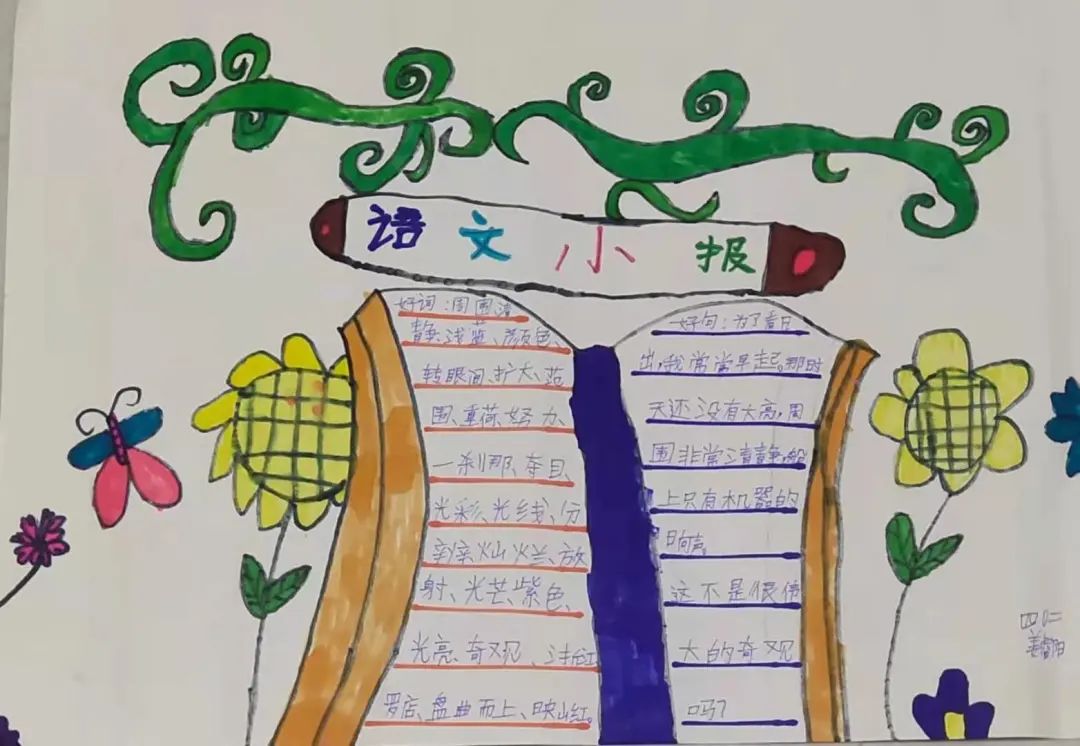 语文小报
好词:周围、清
静、浅蓝、颜色、
转眼间、扩大、范
围、重荷、努力、
一刹那、夺目、
光彩、光线、分
辨、灿烂、放
射、光芒、紫色、
光亮、奇观、油红
罗店、盘曲而上、映山红。
好句:为了看日
出,我常常早起。那时
天还没有大亮,周
围非常清静,船
上只有机器的
响声。
这不是很伟
大的奇观
吗?
四(二)